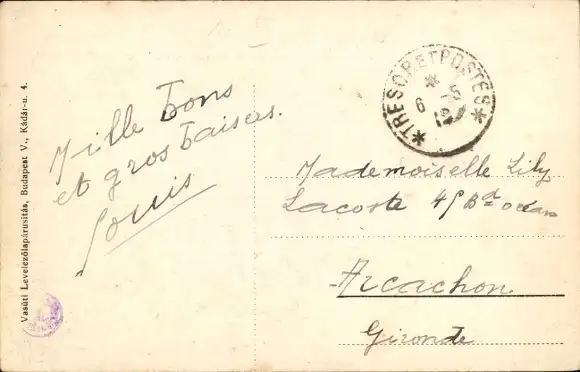 Mille bons
et gros baisers.
Louis
Vasúti Levelezőlapárusitás, Budapest V., Kádár-u. 4.
*TRESOR ET POSTES*
*
6 5
19
Mademoiselle Lily
Lacoste 45 Bd océan
Arcachon
Gironde